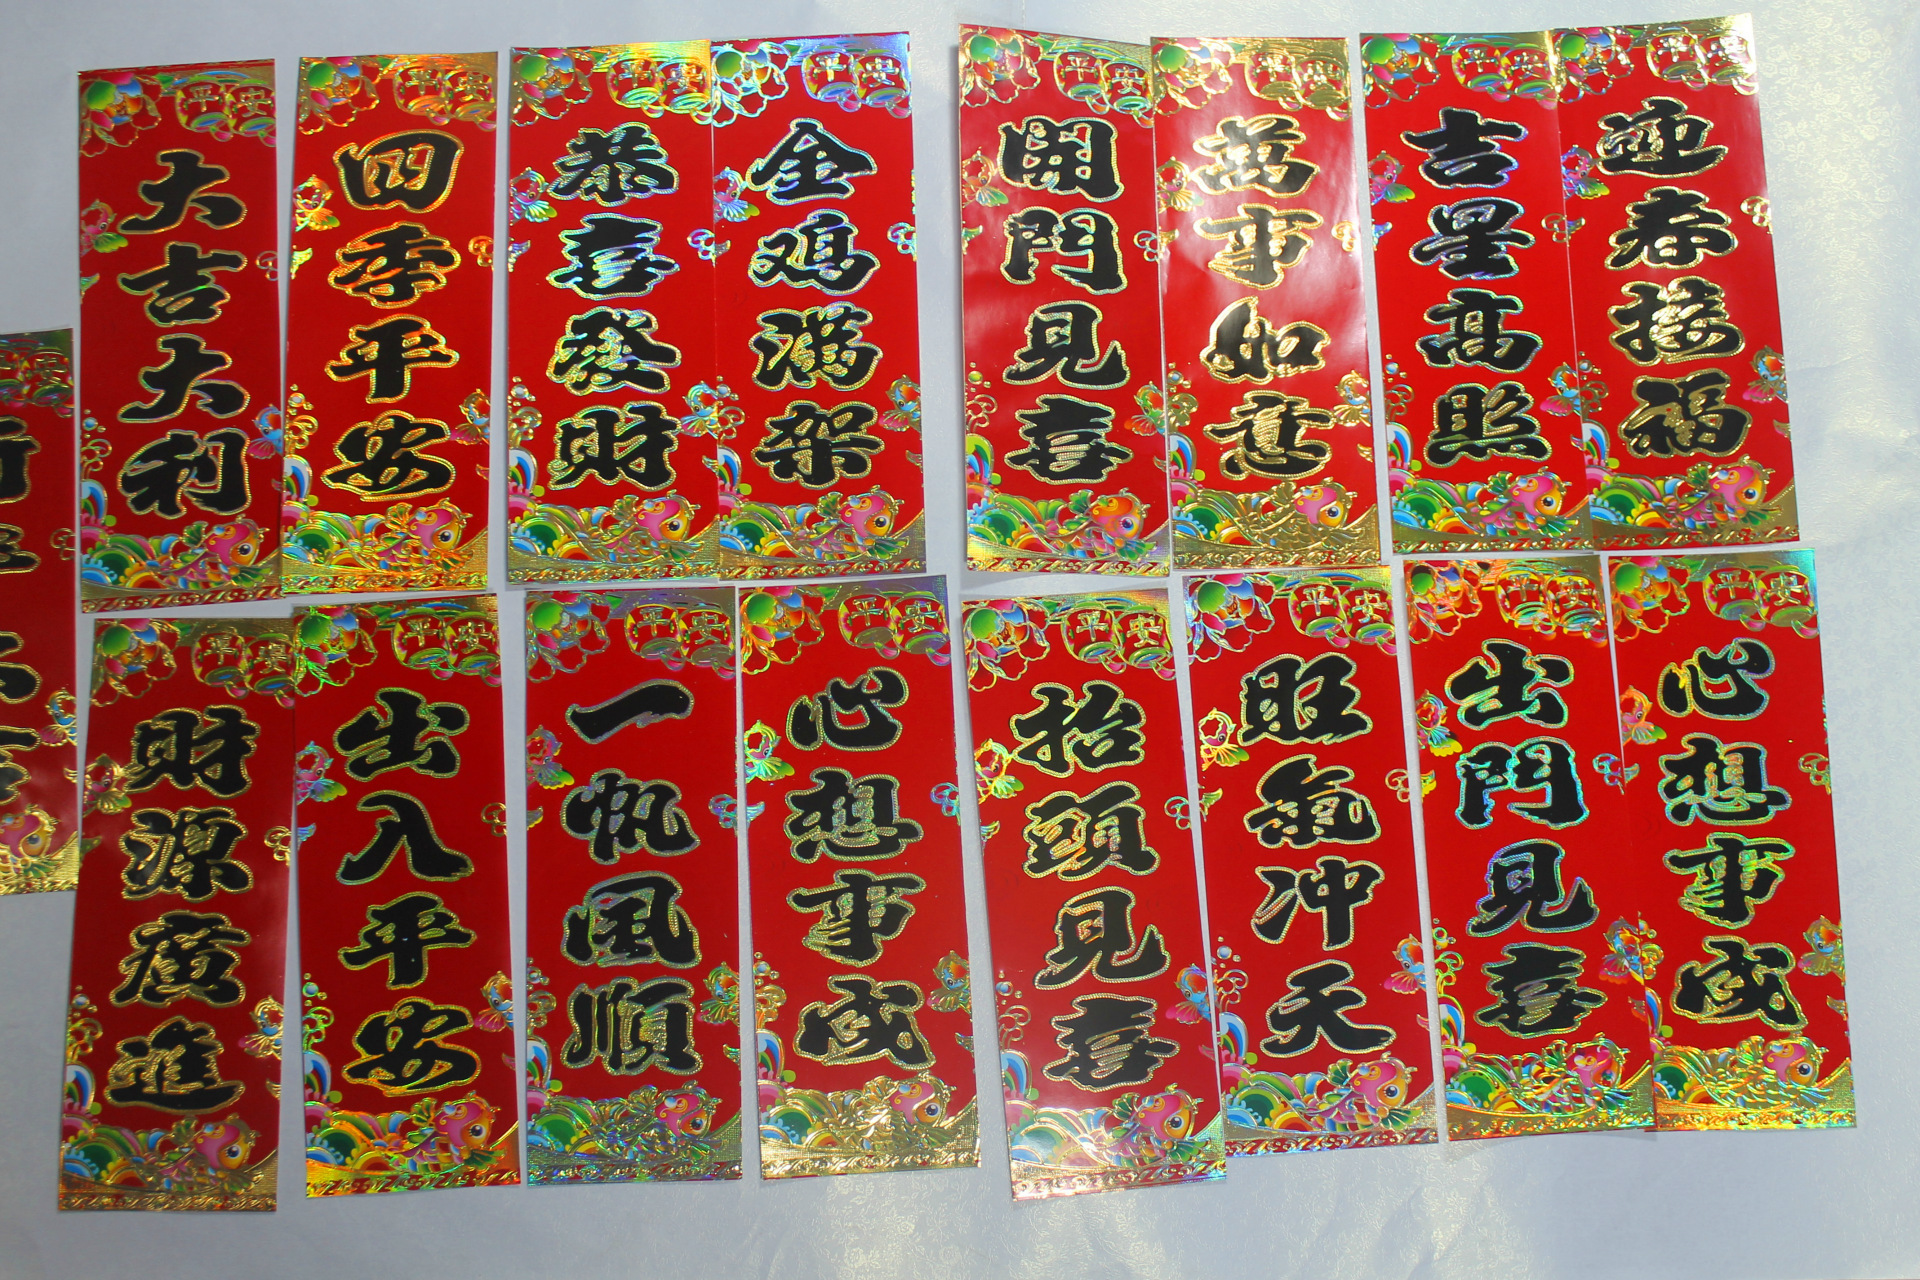 平安
大吉大利
平安
四季平安
平安
恭喜發財
平安
金鸡满架
平安
開門見喜
平安
萬事如意
平安
吉星高照
平安
迎春接福
平安
財源廣進
平安
出入平安
平安
一帆風順
平安
心想事成
平安
抬頭見喜
平安
旺氣冲天
平安
出門見喜
平安
心想事成